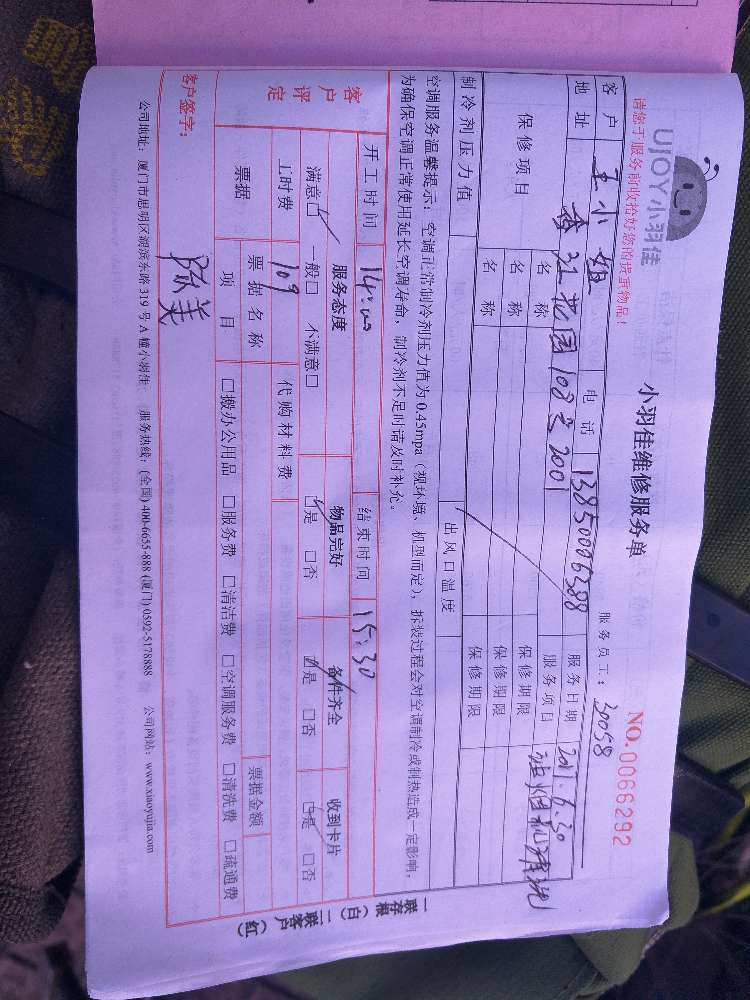 UJOY小羽佳
小羽佳维修服务单
NO.0066292
请您于服务前收拾好您的贵重物品！
服务员工：30058
客户 王小姐 电话 13850006388 服务日期 2017.6.30
地址 香江花园108之2001 服务项目 油烟机清洗
保修项目 名称 保修期限
名称 保修期限
名称 保修期限
制冷剂压力值 出风口温度
空调服务温馨提示：空调正常制冷剂压力值为0.45mpa（视环境、机型而定），拆装过程会对空调制冷或制热造成一定影响，
为确保空调正常使用延长空调寿命，制冷剂不足时请及时补充。
开工时间 14:00 结束时间 15:30
客户评定 服务态度 物品完好 备件齐全 收到卡片
满意☑ 一般□ 不满意□ ☑是 □否 ☑是 □否 ☑是 □否
工时费 109 代购材料费
票据 票据名称 票据金额
项目 □搬办公用品 □服务费 □清洁费 □空调服务费 □清洗费 □疏通费
客户签字：
公司地址：厦门市思明区湖滨东路319号A幢小羽佳 服务热线：(全国) 400-6655-888 (厦门) 0592-5178888 公司网站：www.xiaoyujia.com
一联存根（白）二联客户（红）